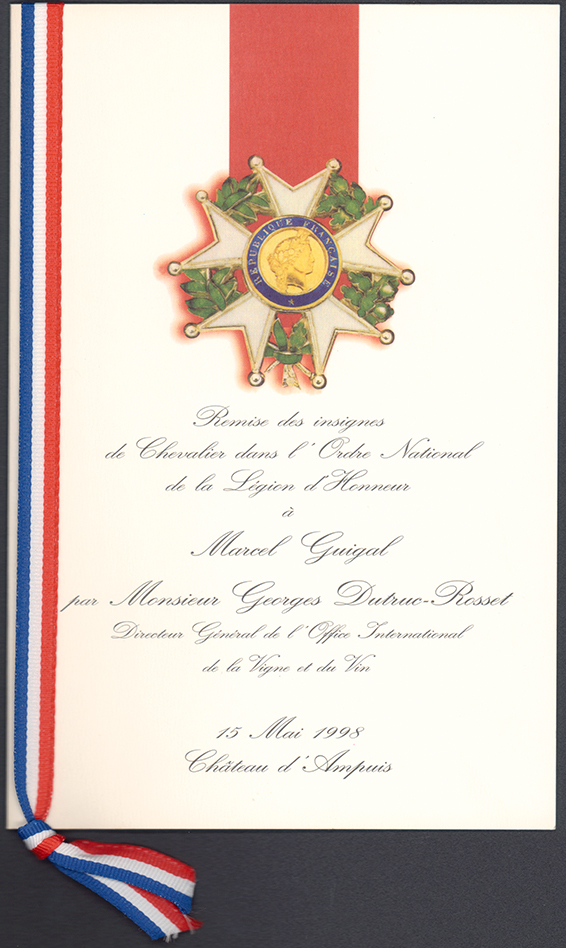 RÉPUBLIQUE FRANÇAISE
Remise des insignes
de Chevalier dans l'Ordre National
de la Légion d'Honneur
à
Marcel Guigal
par Monsieur Georges Dutruc-Rosset
Directeur Général de l'Office International
de la Vigne et du Vin
15 Mai 1998
Château d'Ampuis